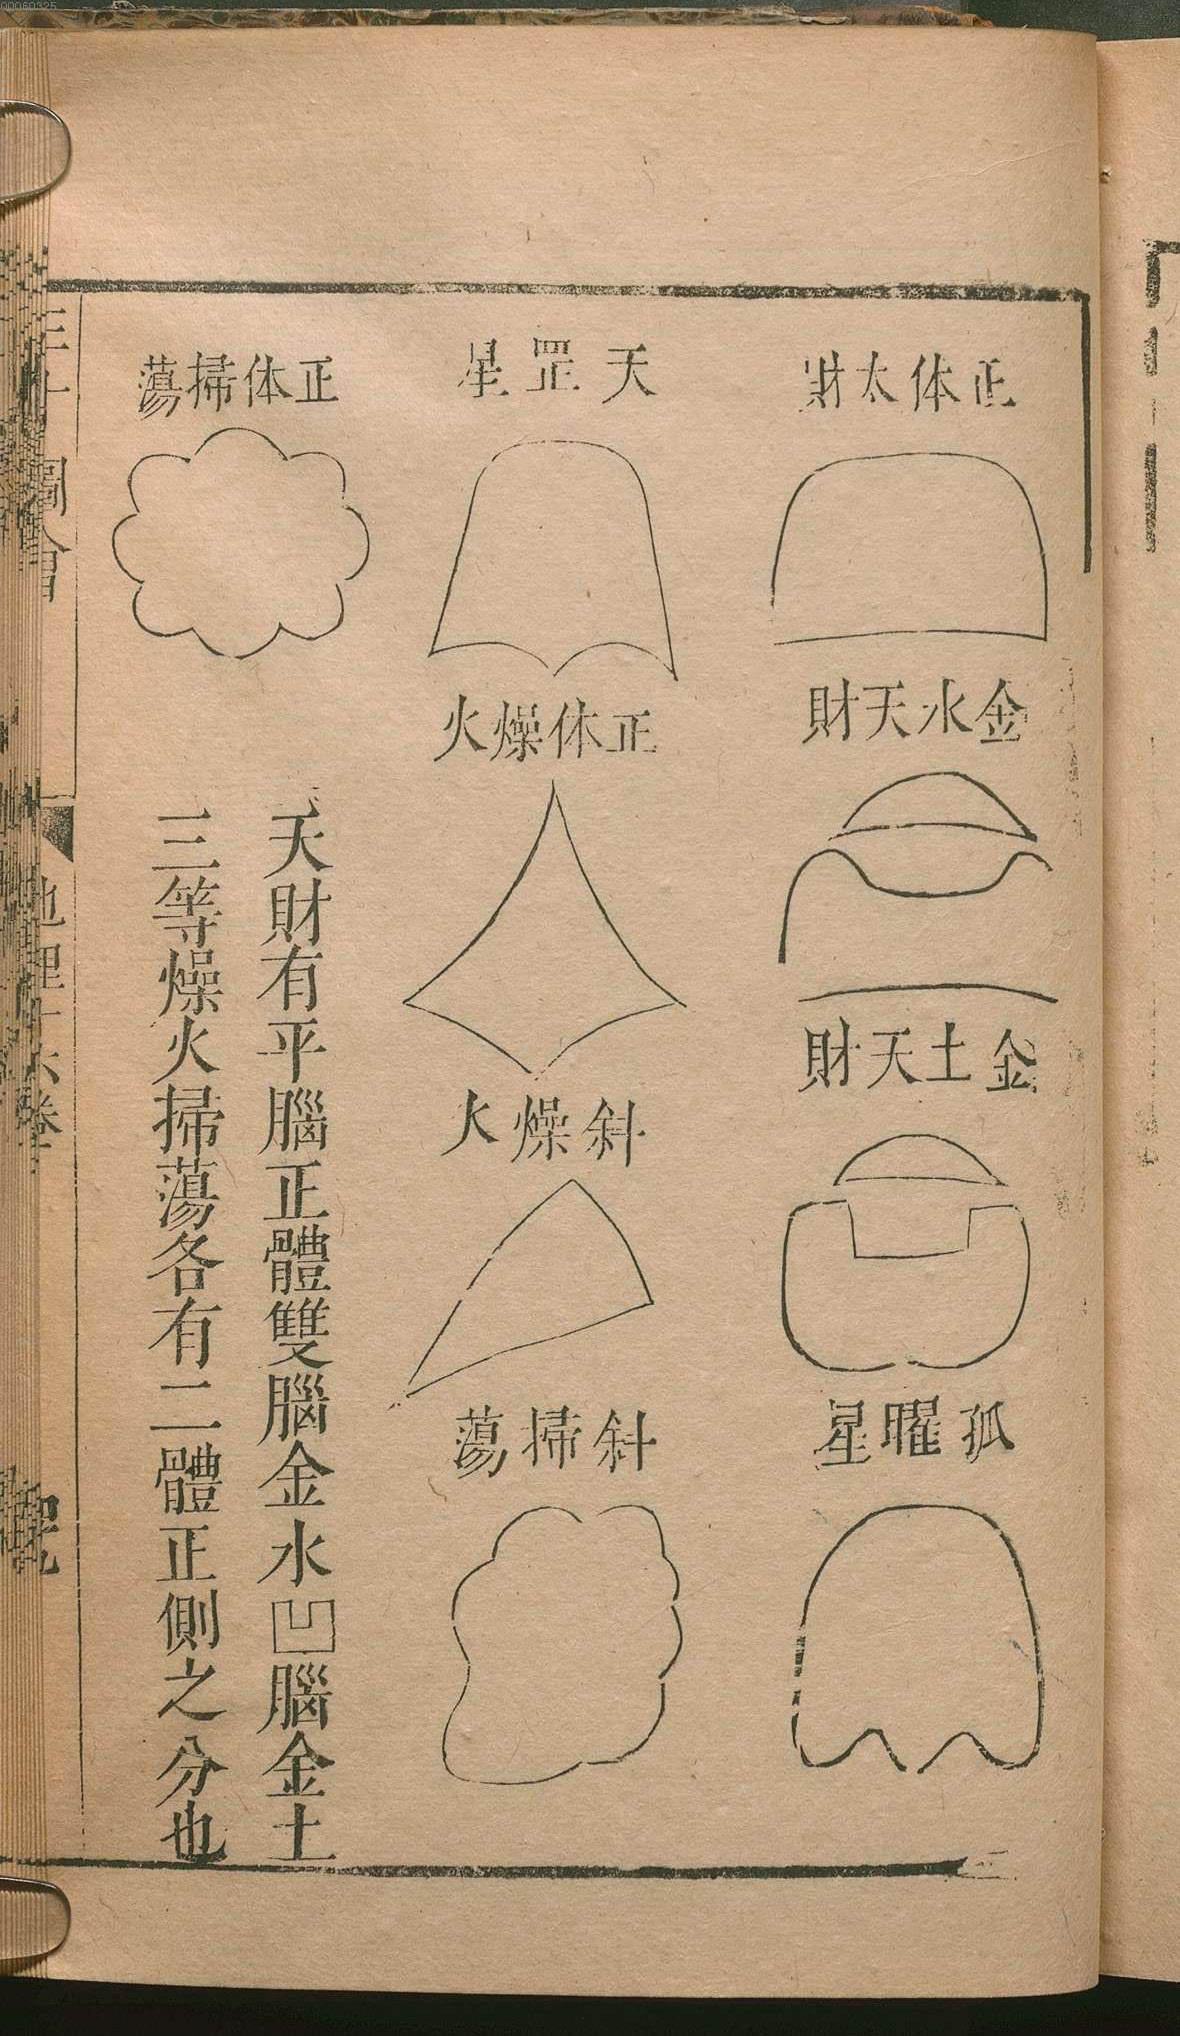 正体太財
金水天財
金土天財
孤曜星
天罡星
正体燥火
斜燥火
斜掃蕩
正体掃蕩
天財有平腦正體雙腦金水凹腦金土
三等燥火掃蕩各有二體正側之分也
圖會
地理十六卷
00060325